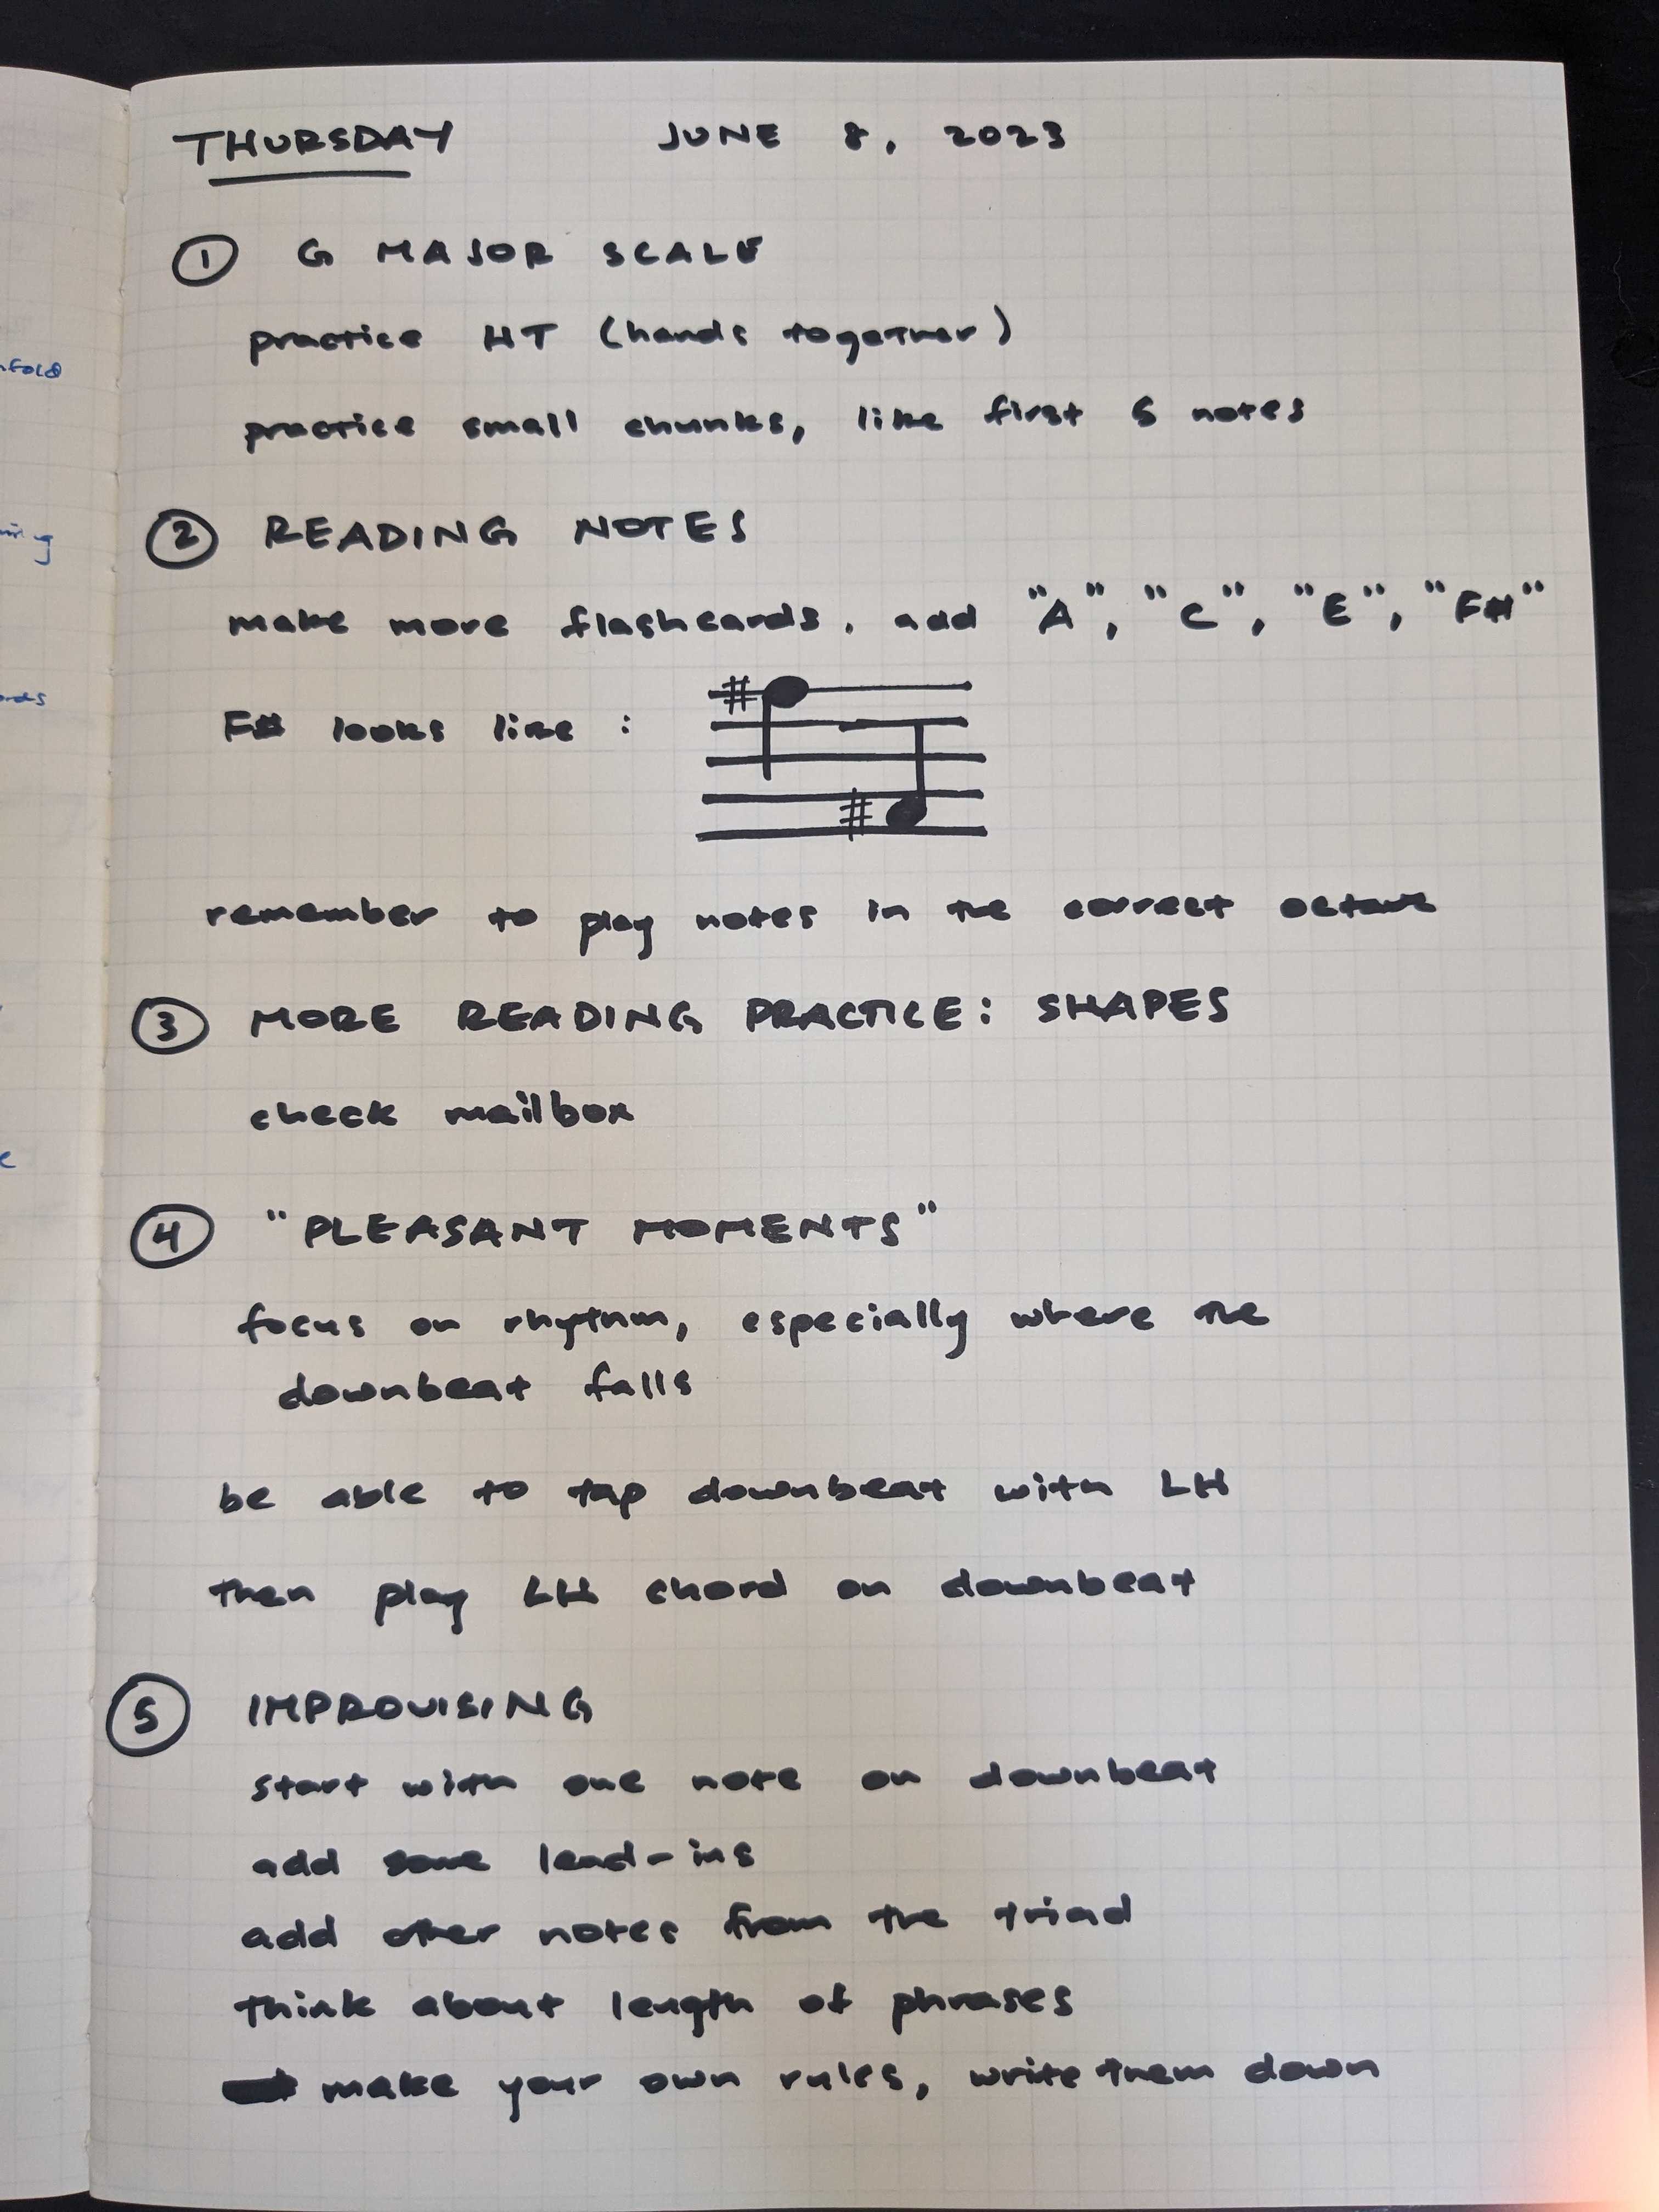 THURSDAY JUNE 8, 2023
① G MAJOR SCALE
practice HT (hands together)
practice small chunks, like first 5 notes
② READING NOTES
make more flashcards. add "A", "C", "E", "F#"
F# looks like :
#
#
remember to play notes in the correct octave
③ MORE READING PRACTICE: SHAPES
check mailbox
④ "PLEASANT MOMENTS"
focus on rhythm, especially where the
downbeat falls
be able to tap downbeat with LH
then play LH chord on downbeat
⑤ IMPROVISING
start with one note on downbeat
add some lead-ins
add other notes from the triad
think about length of phrases
make your own rules, write them down